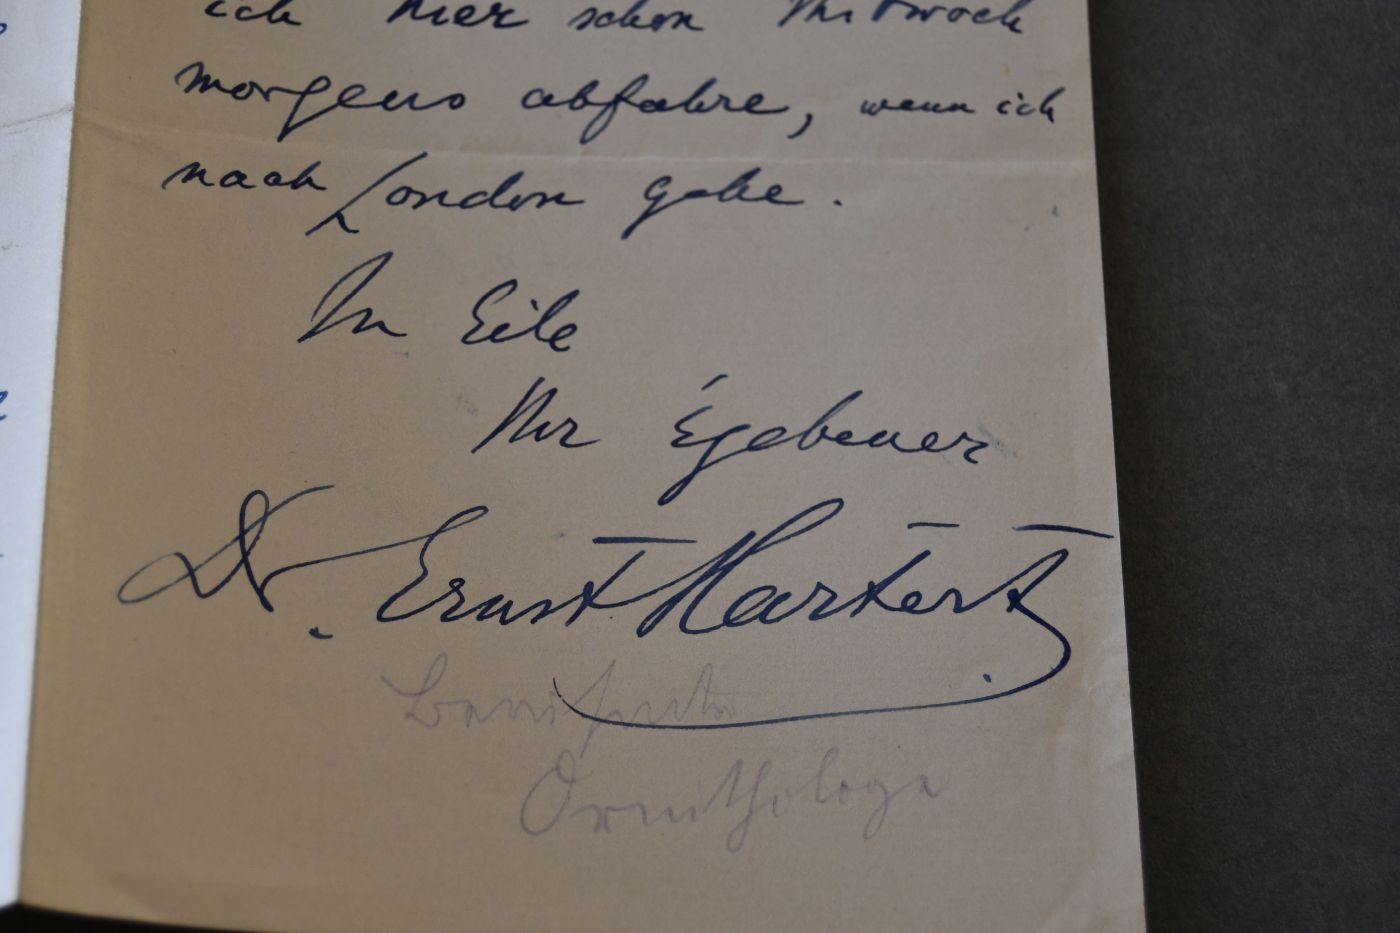 ich hier schon Mittwoch
morgens abfahre, wenn ich
nach London gehe.
In Eile
Ihr Ergebener
Dr. Ernst Hartert
Berühmter
Ornithologe